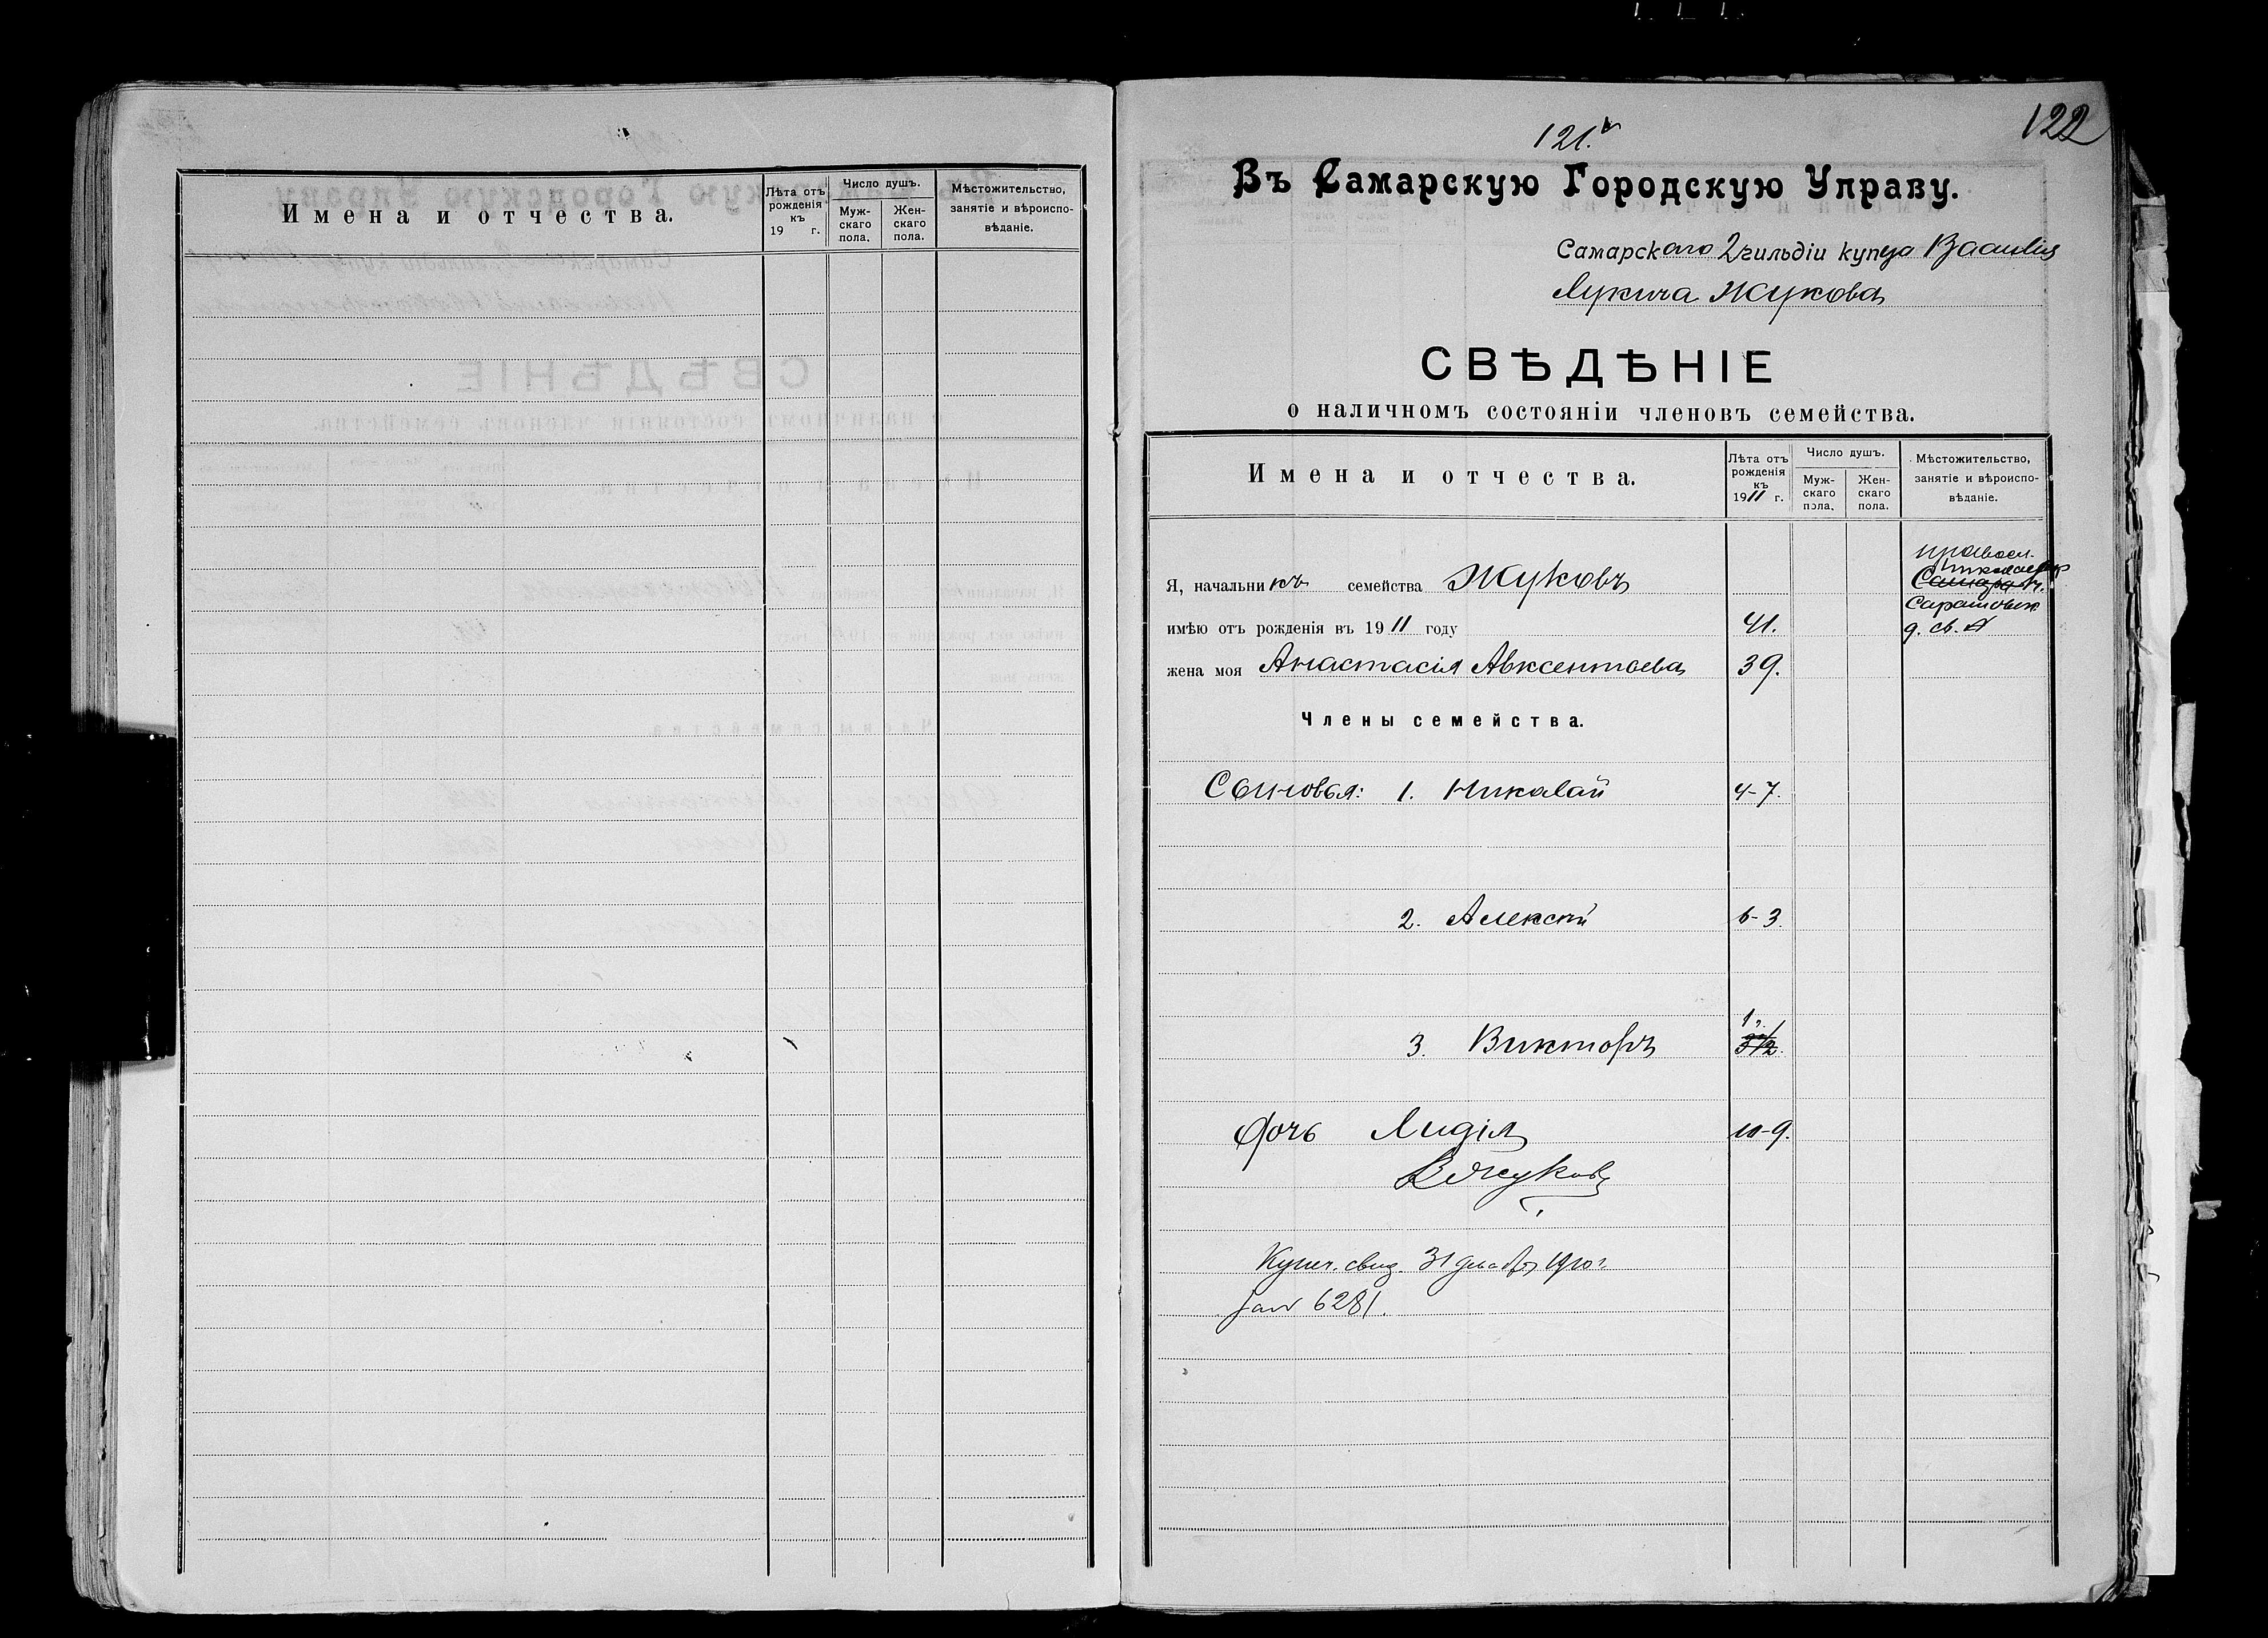 Имена и отчества.
Лѣта отъ рожденія къ 19 г.
Число душъ.
Муж-скаго пола.
Жен-скаго пола.
Мѣстожительство, занятіе и вѣроиспо-вѣданіе.
122
121.
Въ Самарскую Городскую Управу.
Самарскаго 2 гильдіи купца Василія
Лукича Жукова
СВѢДѢНІЕ
о наличномъ состояніи членовъ семейства.
Имена и отчества.
Лѣта отъ рожденія къ 1911 г.
Число душъ.
Муж-скаго пола.
Жен-скаго пола.
Мѣстожительство, занятіе и вѣроиспо-вѣданіе.
правосл.
Я, начальникъ семейства Жуковъ
Самара
Саратовск.
имѣю отъ рожденія въ 1911 году 41.
д. св.
жена моя Анастасія Авксентьева 39.
Члены семейства.
Сыновья: 1. Николай 4-7.
2. Алексѣй 6-3.
3. Викторъ 1
Дочь Лидія 10-9.
В Жуковъ
Купеч. свид. 31 декабря 1910 г.
за № 6281.